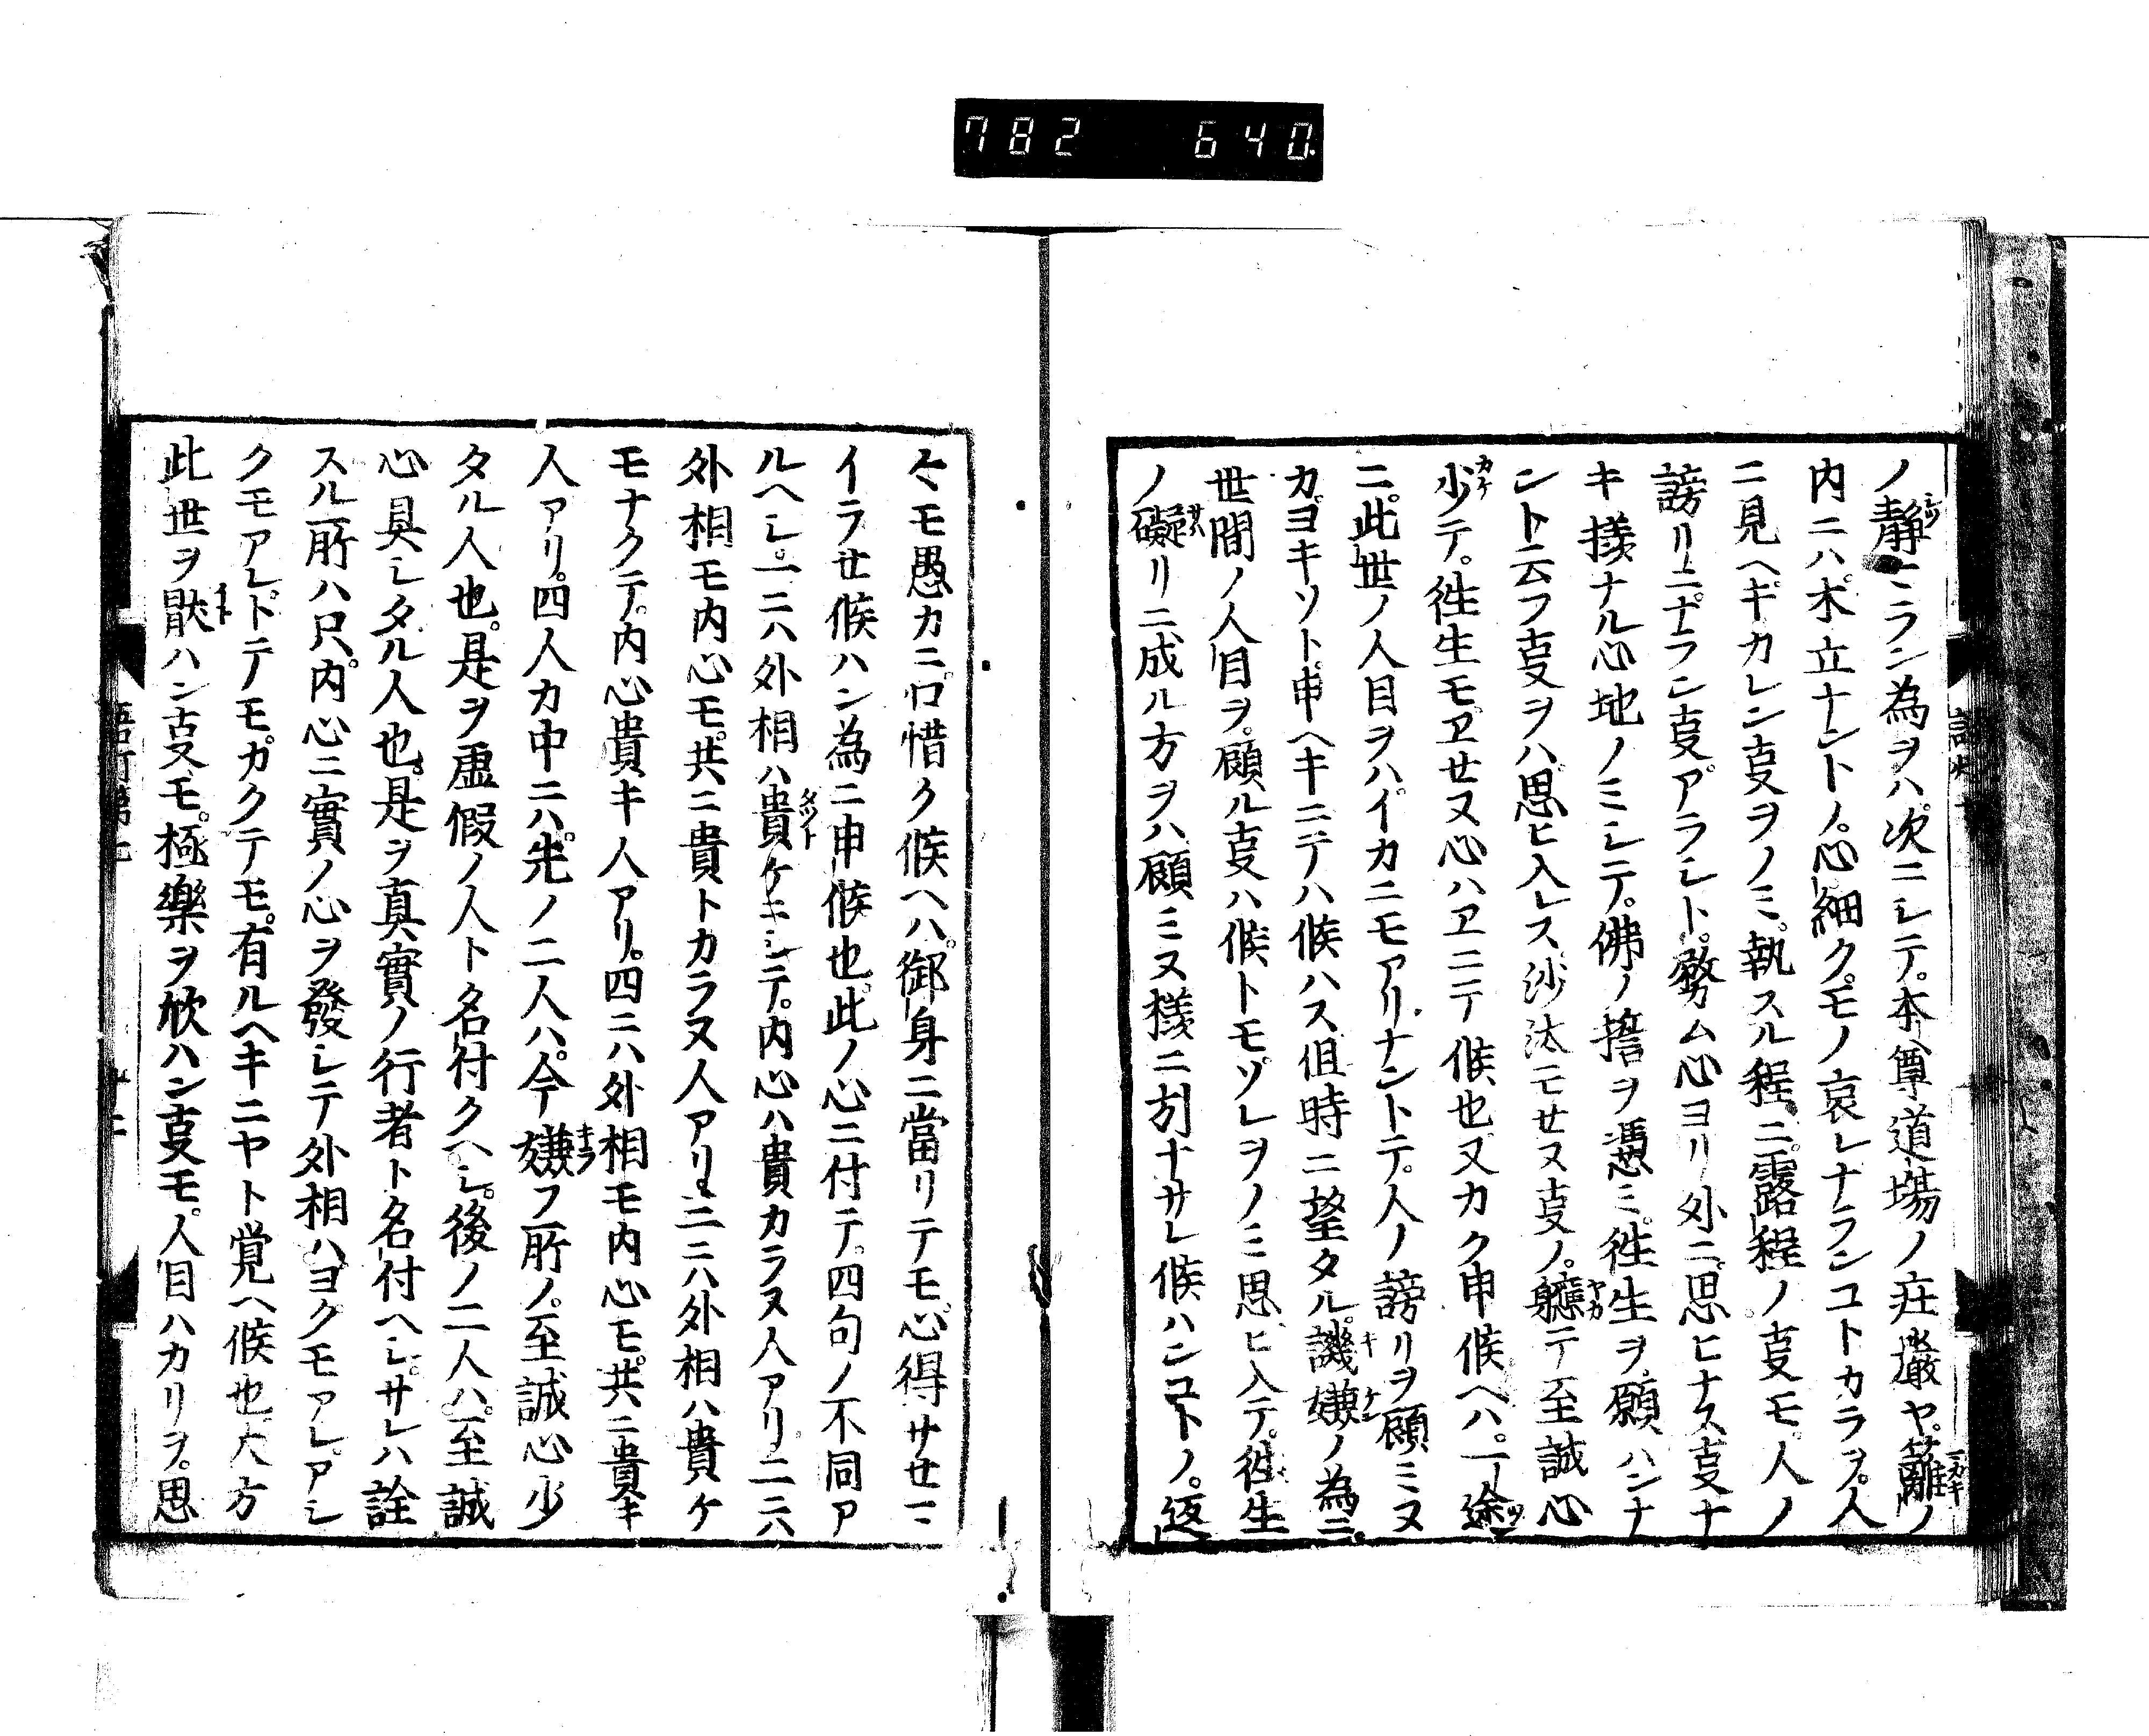 782 640
ノ靜ミラン為ヲハ次ニシテ。本尊道場ノ荘嚴ヤ。籬ノ
内ニハ木立ナントノ。心細クモノ哀レナランコトカラヲ。人
ニ見ヘキカレン㕝ヲノミ。執スル程ニ。露程ノ㕝モ。人ノ
謗リニナラン㕝アラシト。勞ム心ヨリ外ニ。思ヒナス㕝ナ
キ様ナル心地ノミシテ。佛ノ擔ヲ憑ミ。徃生ヲ願ハンナ
ント云フ㕝ヲハ。思ヒ入レス。沙汰モセス㕝ノ。軈テ至誠心
少テ。徃生モヱセヌ心ハヱニテ候也又カク申候ヘハ。一途
ニ。此世ノ人目ヲハイカニモアリナントテ。人ノ謗リヲ顧ミヌ
カヨキソト申ヘキニテハ候ハス但時ニ望タル。譏嫌ノ為ニ。
世間ノ人目ヲ。顧ル㕝ハ候トモソレヲノミ思ヒ入テ。徃生
ノ礙リニ成ル方ヲハ顧ミヌ様ニ引ナサレ候ハンコトノ。返
々モ愚カニ。口惜ク候ヘハ。御身ニ當リテモ。心得サセニ
イラセ候ハン為ニ申候也。此ノ心ニ付テ。四句ノ不同ア
ルヘシ。一ニハ外相ハ貴ケニシテ。内心ハ貴カラヌ人アリ。二ニハ
外相モ内心モ。共ニ貴トカラヌ人アリ。三ニハ外相ハ貴ケ
モナクテ。内心貴キ人アリ。四ニハ外相モ内心モ。共ニ貴キ
人アリ。四人カ中ニハ。先ノ二人ハ。今嫌フ所ノ。至誠心少
タル人也。是ヲ虚假ノ人ト名付クヘシ。後ノ二人ハ。至誠
心具シタル人也。是ヲ真實ノ行者ト名付ヘシ。サレハ詮
スル所ハ只内心ニ實ノ心ヲ發シテ外相ハヨクモアレ。アシ
クモアレ。トテモカクテモ。有ルヘキニヤト覚ヘ候也。大方
此世ヲ厭ハン㕝モ。極樂ヲ欣ハン㕝モ。人目ハカリヲ。思